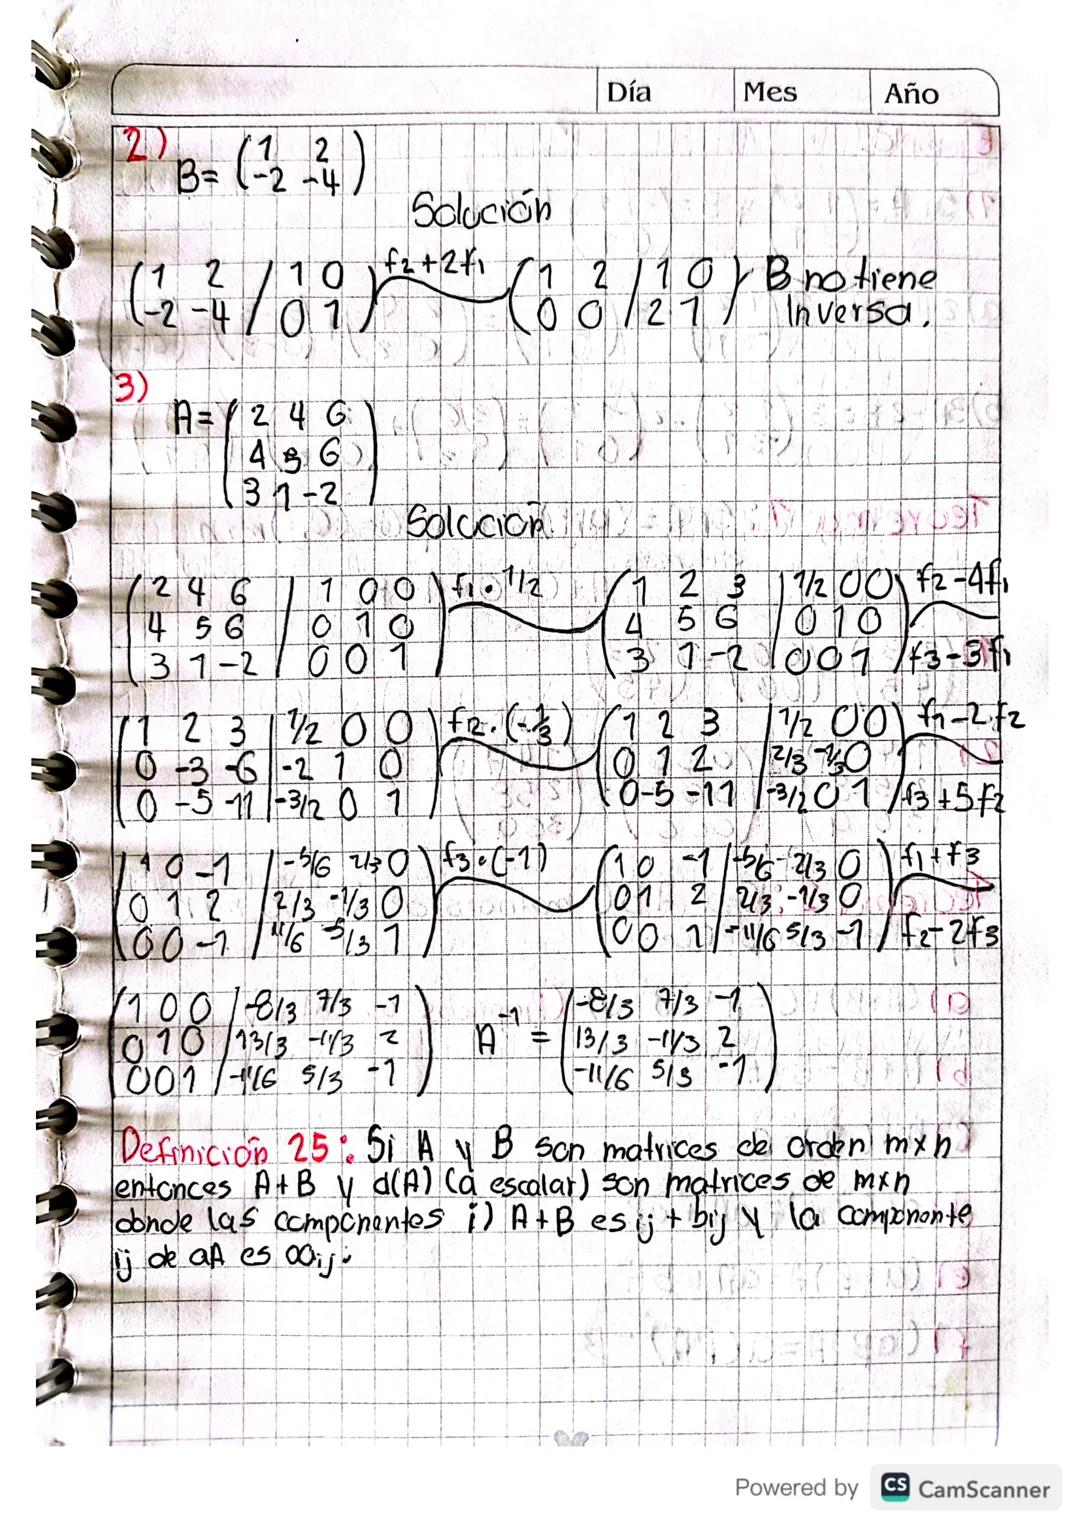 Día Mes Año
2)
B= (1 2
-2 -4)
Solución
(1 2 / 1 0
-2 -4 / 0 1) f2+2f1 (1 2 / 1 0
0 0 / 2 1) B no tiene
Inversa.
3)
A= (2 4 6
4 5 6
3 1 -2)
Solución
(2 4 6 | 1 0 0
4 5 6 | 0 1 0
3 1 -2 | 0 0 1) f1 · 1/2 (1 2 3 | 1/2 0 0
4 5 6 | 0 1 0
3 1 -2 | 0 0 1) f2-4f1
f3-3f1
(1 2 3 | 1/2 0 0
0 -3 -6 | -2 1 0
0 -5 -11 | -3/2 0 1) f2·(-1/3) (1 2 3 | 1/2 0 0
0 1 2 | 2/3 -1/3 0
0 -5 -11 | -3/2 0 1) f1-2f2
f3+5f2
(1 0 -1 | -5/6 2/3 0
0 1 2 | 2/3 -1/3 0
0 0 -1 | 11/6 -5/3 1) f3·(-1) (1 0 -1 | -5/6 -2/3 0
0 1 2 | 2/3 -1/3 0
0 0 1 | -11/6 5/3 -1) f1+f3
f2-2f3
(1 0 0 | -8/3 7/3 -1
0 1 0 | 13/3 -11/3 2
0 0 1 | -11/6 5/3 -1) A⁻¹ = (-8/3 7/3 -1
13/3 -11/3 2
-11/6 5/3 -1)
Definición 25: Si A y B son matrices de orden mxn
entonces A+B y α(A) (α escalar) son matrices de mxn
donde las componentes i) A+B es ij + bij y la componente
ij de αA es ααij.
Powered by CS CamScanner